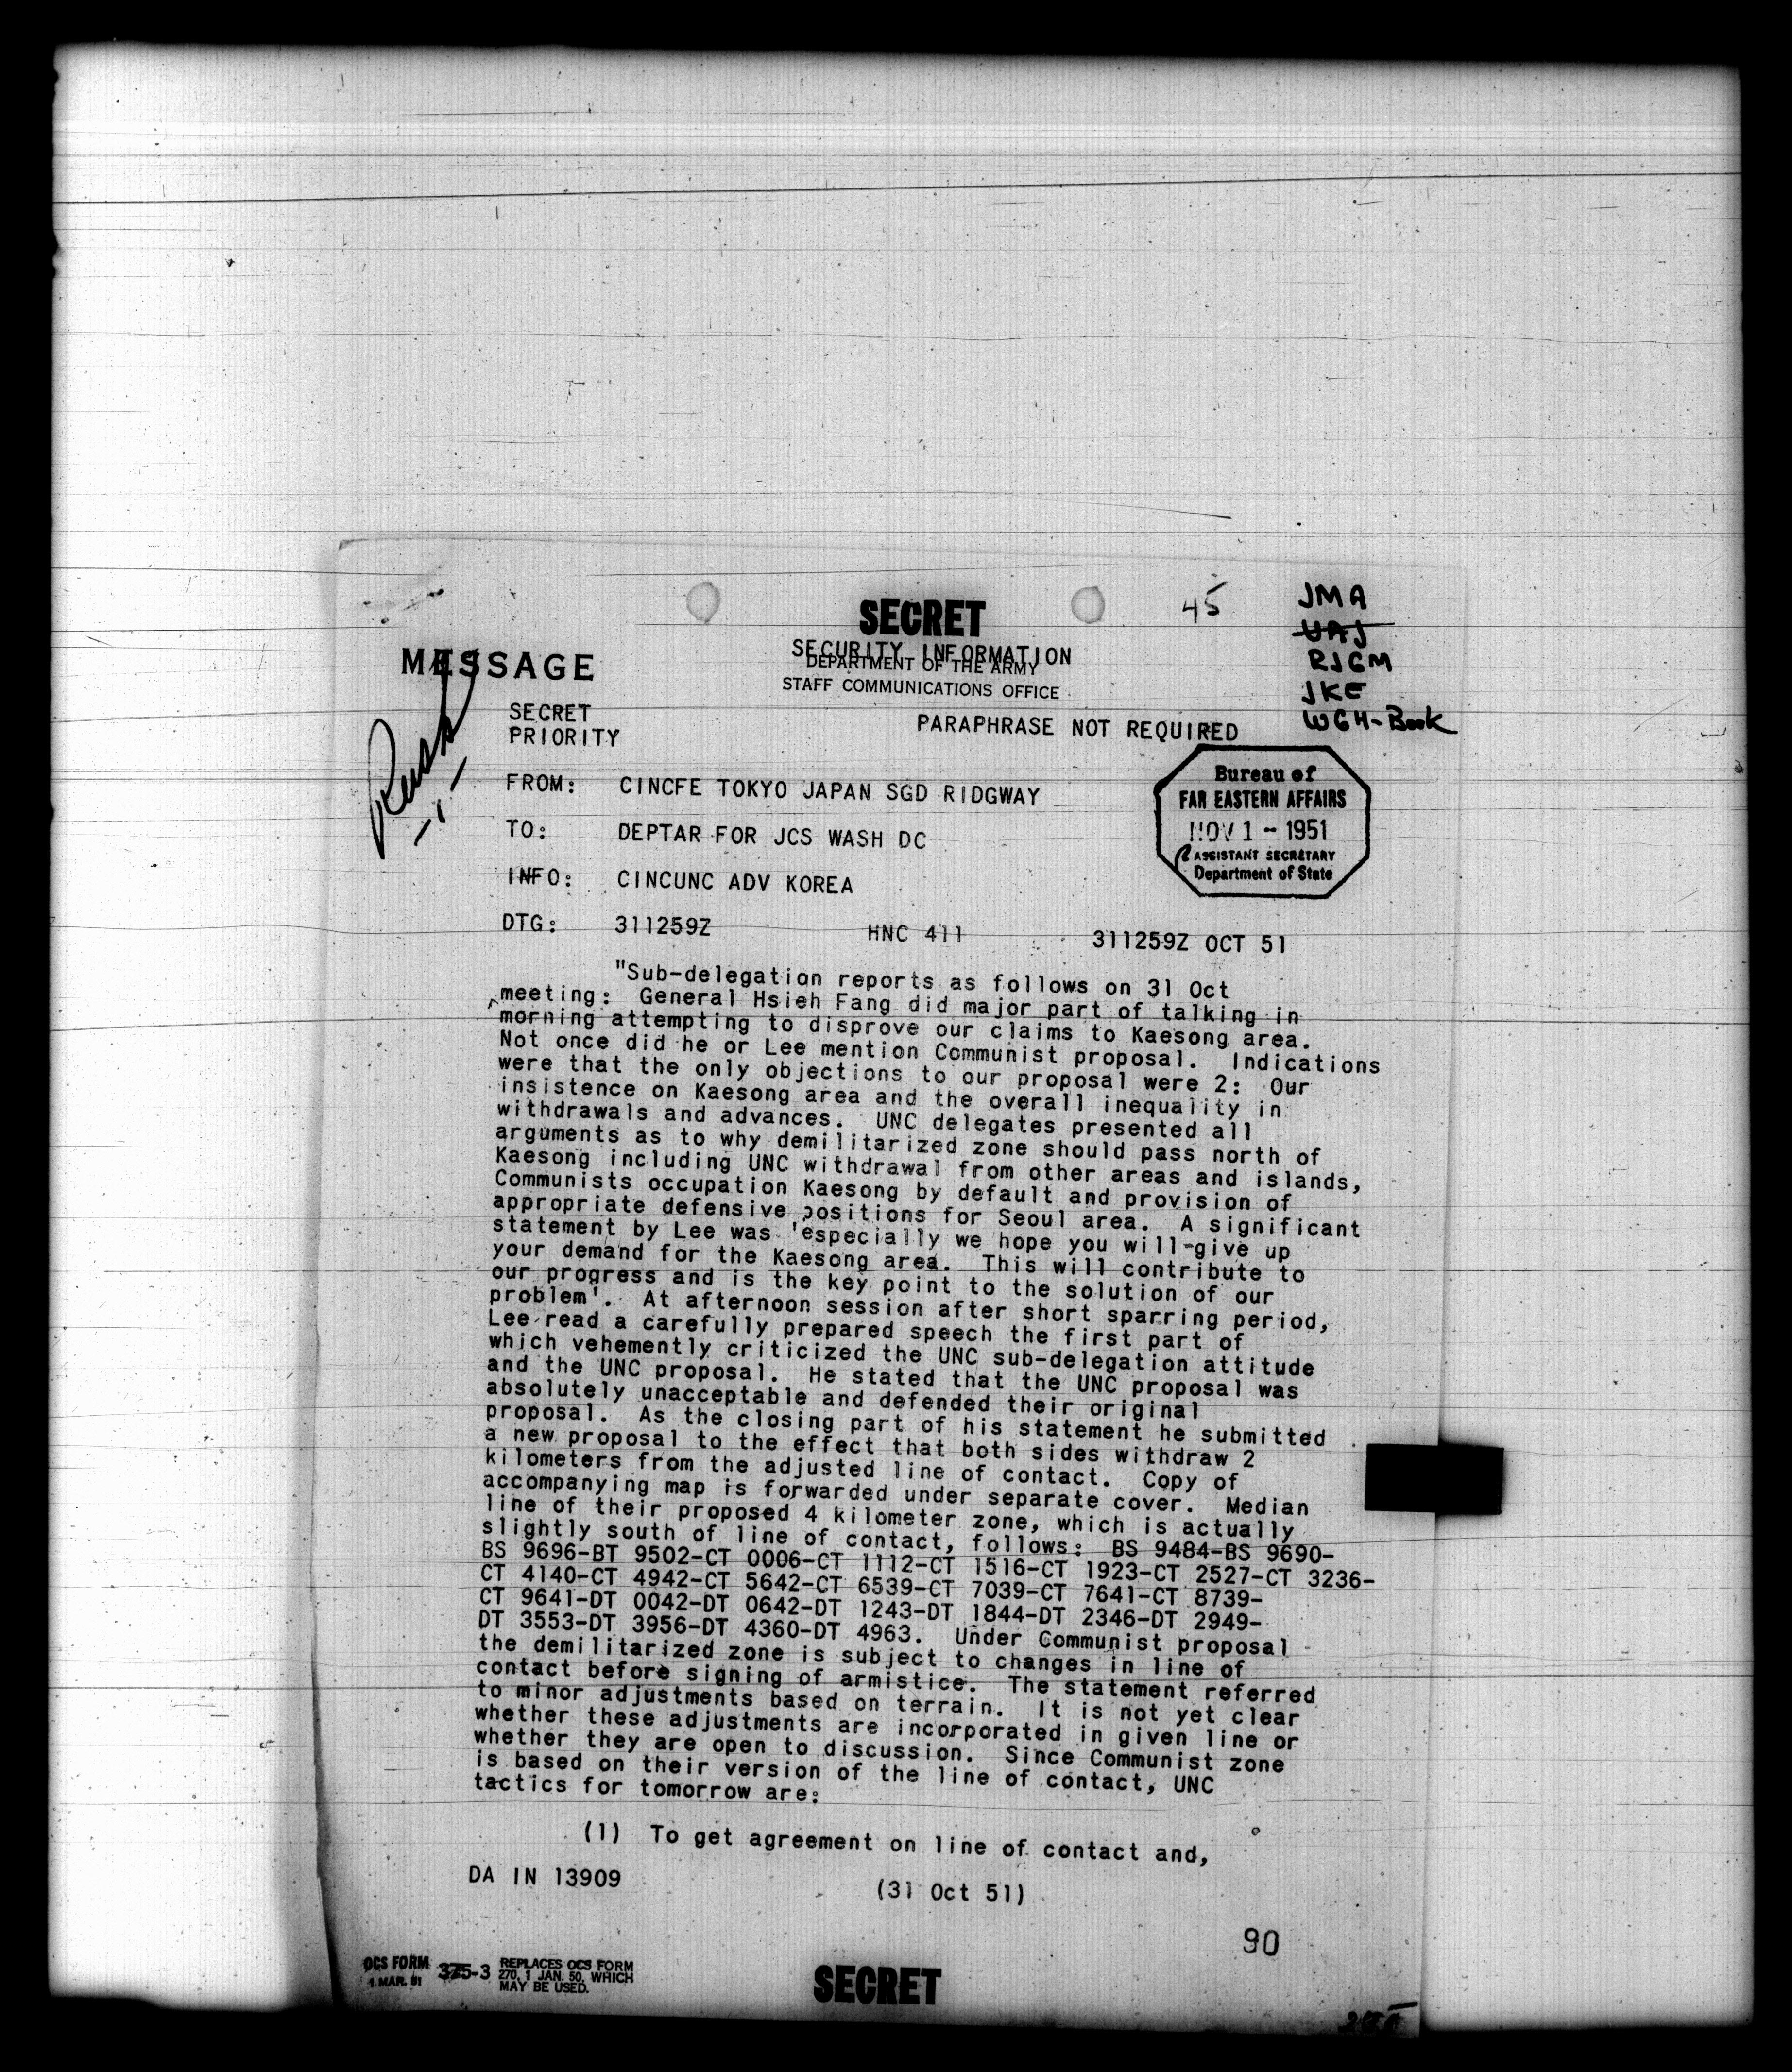 45
JMA
UAJ
RJGM
JKE
WGH-Book
SECRET
SECURITY INFORMATION
DEPARTMENT OF THE ARMY
STAFF COMMUNICATIONS OFFICE
MESSAGE
SECRET
PRIORITY
PARAPHRASE NOT REQUIRED
FROM: CINCFE TOKYO JAPAN SGD RIDGWAY
TO: DEPTAR FOR JCS WASH DC
INFO: CINCUNC ADV KOREA
Bureau of
FAR EASTERN AFFAIRS
NOV 1 - 1951
ASSISTANT SECRETARY
Department of State
DTG: 311259Z HNC 411 311259Z OCT 51
"Sub-delegation reports as follows on 31 Oct
meeting: General Hsieh Fang did major part of talking in
morning attempting to disprove our claims to Kaesong area.
Not once did he or Lee mention Communist proposal. Indications
were that the only objections to our proposal were 2: Our
insistence on Kaesong area and the overall inequality in
withdrawals and advances. UNC delegates presented all
arguments as to why demilitarized zone should pass north of
Kaesong including UNC withdrawal from other areas and islands,
Communists occupation Kaesong by default and provision of
appropriate defensive positions for Seoul area. A significant
statement by Lee was 'especially we hope you will give up
your demand for the Kaesong area. This will contribute to
our progress and is the key point to the solution of our
problem'. At afternoon session after short sparring period,
Lee read a carefully prepared speech the first part of
which vehemently criticized the UNC sub-delegation attitude
and the UNC proposal. He stated that the UNC proposal was
absolutely unacceptable and defended their original
proposal. As the closing part of his statement he submitted
a new proposal to the effect that both sides withdraw 2
kilometers from the adjusted line of contact. Copy of
accompanying map is forwarded under separate cover. Median
line of their proposed 4 kilometer zone, which is actually
slightly south of line of contact, follows: BS 9484-BS 9690-
BS 9696-BT 9502-CT 0006-CT 1112-CT 1516-CT 1923-CT 2527-CT 3236-
CT 4140-CT 4942-CT 5642-CT 6539-CT 7039-CT 7641-CT 8739-
CT 9641-DT 0042-DT 0642-DT 1243-DT 1844-DT 2346-DT 2949-
DT 3553-DT 3956-DT 4360-DT 4963. Under Communist proposal
the demilitarized zone is subject to changes in line of
contact before signing of armistice. The statement referred
to minor adjustments based on terrain. It is not yet clear
whether these adjustments are incorporated in given line or
whether they are open to discussion. Since Communist zone
is based on their version of the line of contact, UNC
tactics for tomorrow are:
(1) To get agreement on line of contact and,
DA IN 13909
(31 Oct 51)
90
OCS FORM 375-3 REPLACES OCS FORM
1 MAR. 51 270, 1 JAN. 50, WHICH
MAY BE USED.
SECRET